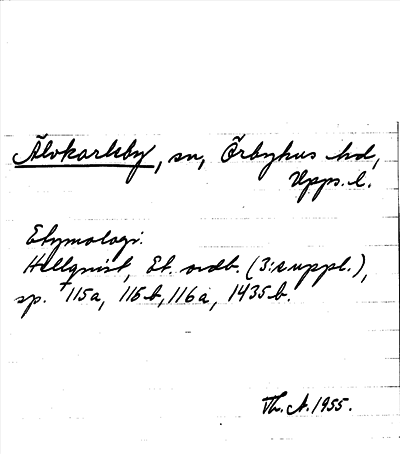 Älvkarleby, sn, Örbyhus hd,
Upps. l.
Etymologi.
Hellquist, Et. ordb. (3:e uppl.),
sp. 115a, 115b, 116a, 1435b.
Th. A. 1955.